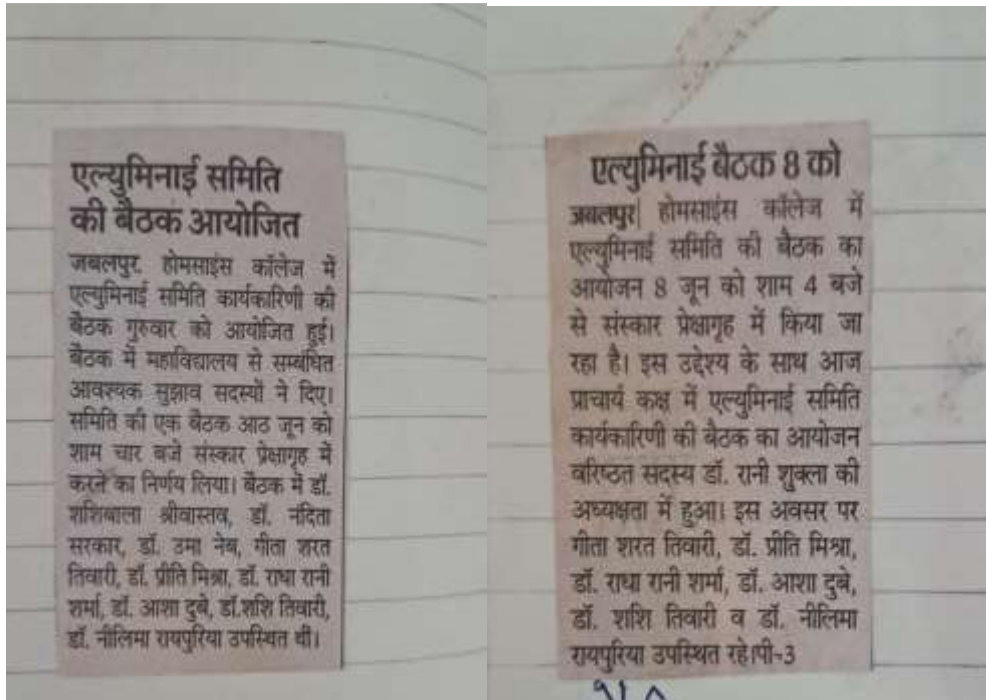 एल्युमिनाई समिति
की बैठक आयोजित
जबलपुर. होमसाइंस कॉलेज में
एल्युमिनाई समिति कार्यकारिणी की
बैठक गुरुवार को आयोजित हुई।
बैठक में महाविद्यालय से सम्बंधित
आवश्यक सुझाव सदस्यों ने दिए।
समिति की एक बैठक आठ जून को
शाम चार बजे संस्कार प्रेक्षागृह में
करने का निर्णय लिया। बैठक में डॉ.
शशिबाला श्रीवास्तव, डॉ. नंदिता
सरकार, डॉ. उमा नेब, गीता शरत
तिवारी, डॉ. प्रीति मिश्रा, डॉ. राधा रानी
शर्मा, डॉ. आशा दुबे, डॉ.शशि तिवारी,
डॉ. नीलिमा रायपुरिया उपस्थित थी।
एल्युमिनाई बैठक 8 को
जबलपुर| होमसाइंस कॉलेज में
एल्युमिनाई समिति की बैठक का
आयोजन 8 जून को शाम 4 बजे
से संस्कार प्रेक्षागृह में किया जा
रहा है। इस उद्देश्य के साथ आज
प्राचार्य कक्ष में एल्युमिनाई समिति
कार्यकारिणी की बैठक का आयोजन
वरिष्ठत सदस्य डॉ. रानी शुक्ला की
अध्यक्षता में हुआ। इस अवसर पर
गीता शरत तिवारी, डॉ. प्रीति मिश्रा,
डॉ. राधा रानी शर्मा, डॉ. आशा दुबे,
डॉ. शशि तिवारी व डॉ. नीलिमा
रायपुरिया उपस्थित रहे।पी-3